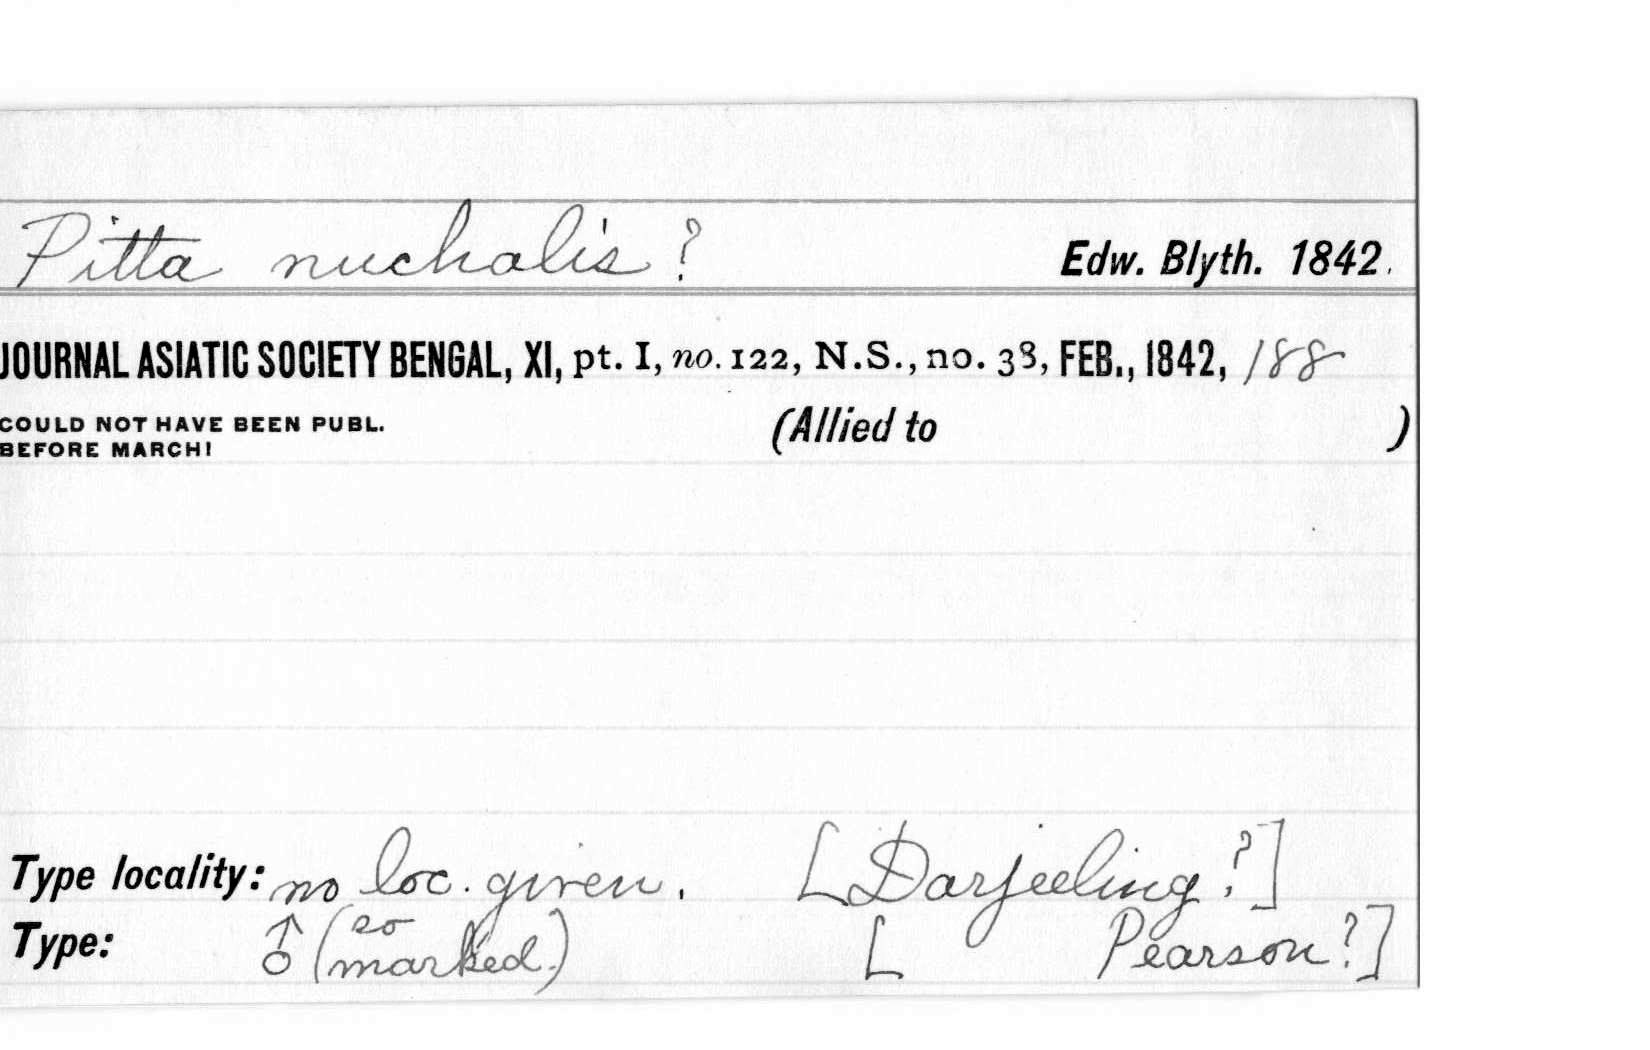 Pitta nuchalis ? Edw. Blyth. 1842.
JOURNAL ASIATIC SOCIETY BENGAL, XI, pt. I, no. 122, N.S., no. 38, FEB., 1842, 188
COULD NOT HAVE BEEN PUBL. (Allied to )
BEFORE MARCH!
Type locality: no loc. given. [Darjeeling?]
Type: ♂ (so marked.) [ Pearson?]